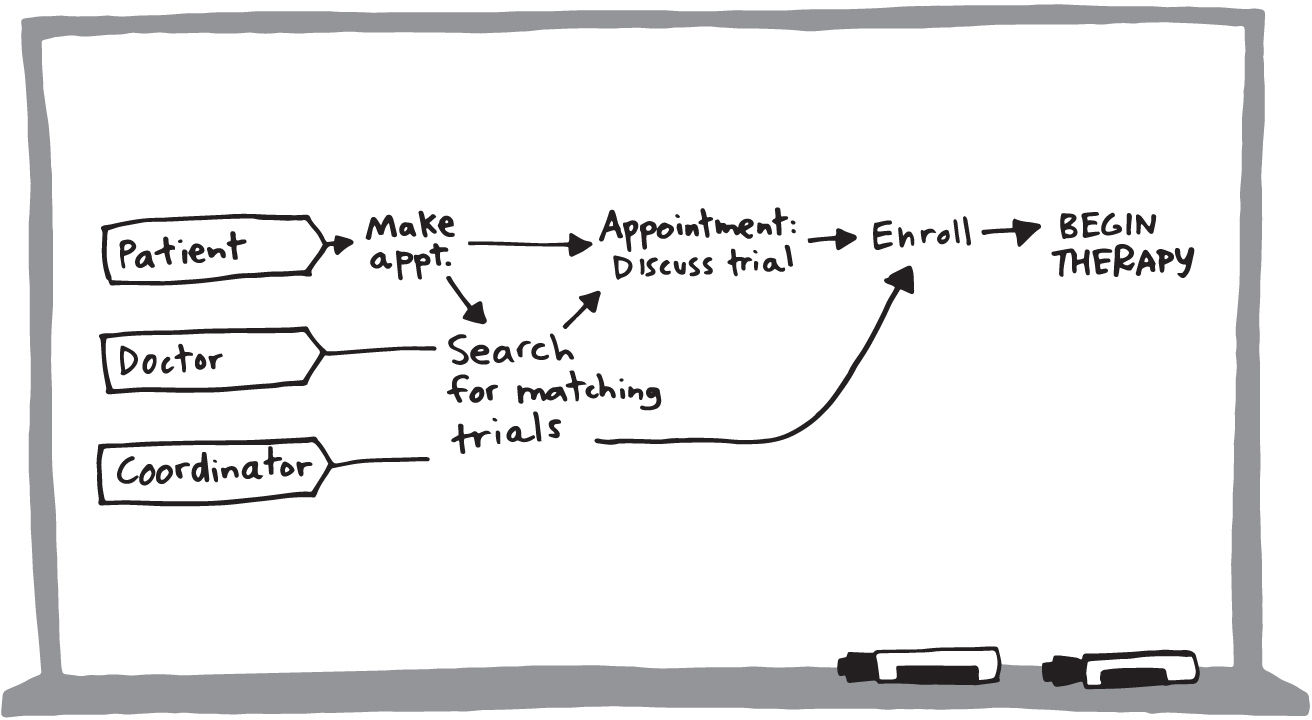 Patient
Make
appt.
Appointment:
Discuss trial
Enroll
BEGIN
THERAPY
Doctor
Search
for matching
trials
Coordinator